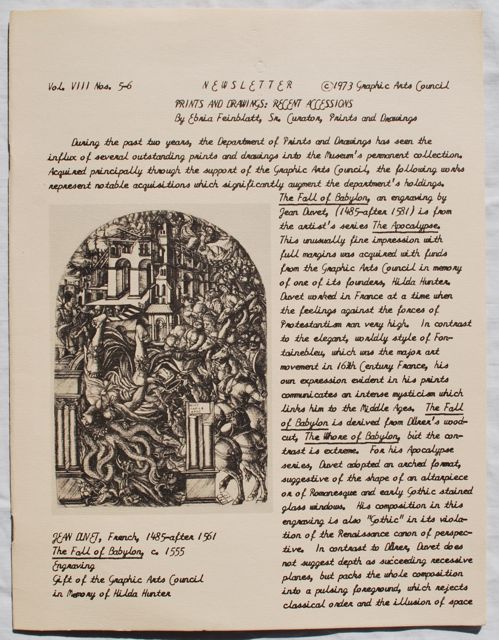 Vol. VIII Nos. 5-6 NEWSLETTER ©1973 Graphic Arts Council
PRINTS AND DRAWINGS: RECENT ACCESSIONS
By Ebria Feinblatt, Sr. Curator, Prints and Drawings
During the past two years, the Department of Prints and Drawings has seen the
influx of several outstanding prints and drawings into the Museum's permanent collection.
Acquired principally through the support of the Graphic Arts Council, the following works
represent notable acquisitions which significantly augment the department's holdings.
The Fall of Babylon, an engraving by
Jean Duvet, (1485-after 1581) is from
the artist's series The Apocalypse.
This unusually fine impression with
full margins was acquired with funds
from the Graphic Arts Council in memory
of one of its founders, Hilda Hunter.
Duvet worked in France at a time when
the feelings against the forces of
Protestantism ran very high. In contrast
to the elegant, worldly style of Fon-
tainebleu, which was the major art
movement in 16th Century France, his
own expression evident in his prints
communicates an intense mysticism which
links him to the Middle Ages. The Fall
of Babylon is derived from Dürer's wood-
cut, The Whore of Babylon, but the con-
trast is extreme. For his Apocalypse
series, Duvet adopted an arched format,
suggestive of the shape of an altarpiece
or of Romanesque and early Gothic stained
glass windows. His composition in this
engraving is also "Gothic" in its viola-
tion of the Renaissance canon of perspec-
tive. In contrast to Dürer, Duvet does
not suggest depth as succeeding recessive
planes, but packs the whole composition
into a pulsing foreground, which rejects
classical order and the illusion of space
JEAN DUVET, French, 1485-after 1561
The Fall of Babylon, c. 1555
Engraving
Gift of the Graphic Arts Council
in Memory of Hilda Hunter